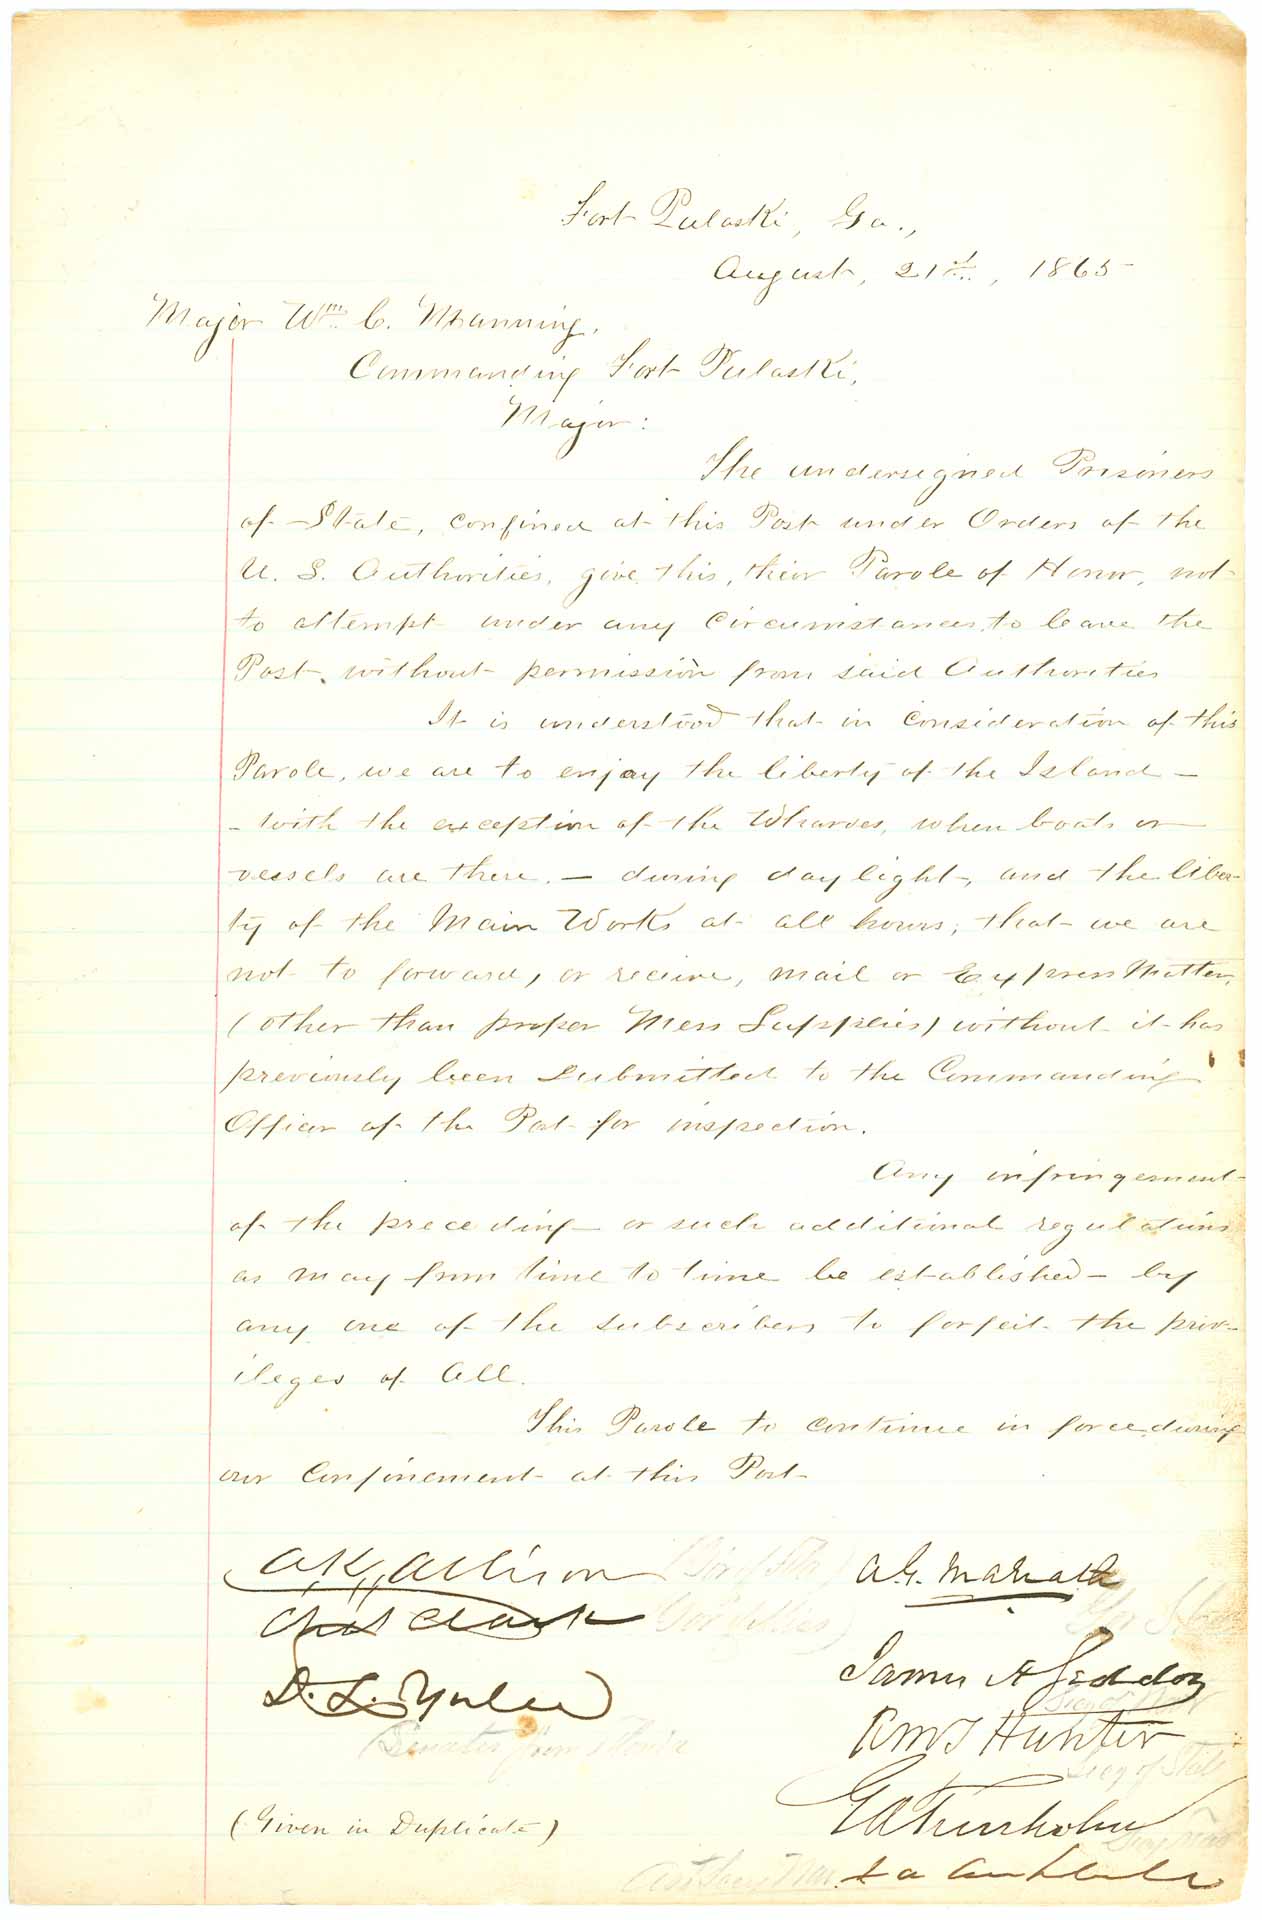 Fort Pulaski, Ga.,
August, 21st, 1865
Major Wm. C. Manning,
Commanding Fort Pulaski,
Major:
The undersigned Prisoners
of State, confined at this Post under Orders of the
U. S. Authorities, give this, their Parole of Honor, not
to attempt under any Circumstances, to leave the
Post, without permission from said Authorities
It is understood that in Consideration of this
Parole, we are to enjoy the liberty of the Island —
- with the exception of the Wharves, when boats or
vessels are there. — during daylight, and the liber-
ty of the Main Works at all hours; that we are
not to forward, or receive, mail or Express Matter,
(other than proper Mess Supplies) without it has
previously been Submitted to the Commanding
Officer of the Post for inspection.
Any infringement
of the preceding — or such additional regulations
as may from time to time be established — by
any one of the subscribers to forfeit the priv-
ileges of All.
This Parole to continue in force during
our Confinement at this Post
A K Allison (Gov of Fla) A. G. Magrath
Chas Clark Gov of Miss) Gov S. Car
D. L. Yulee James A Seddon
Senator from Florida Secy of War
R M T Hunter
Secy of State
G A Trenholm
(Given in Duplicate) Secy Treas
Asst Secy War J A Campbell